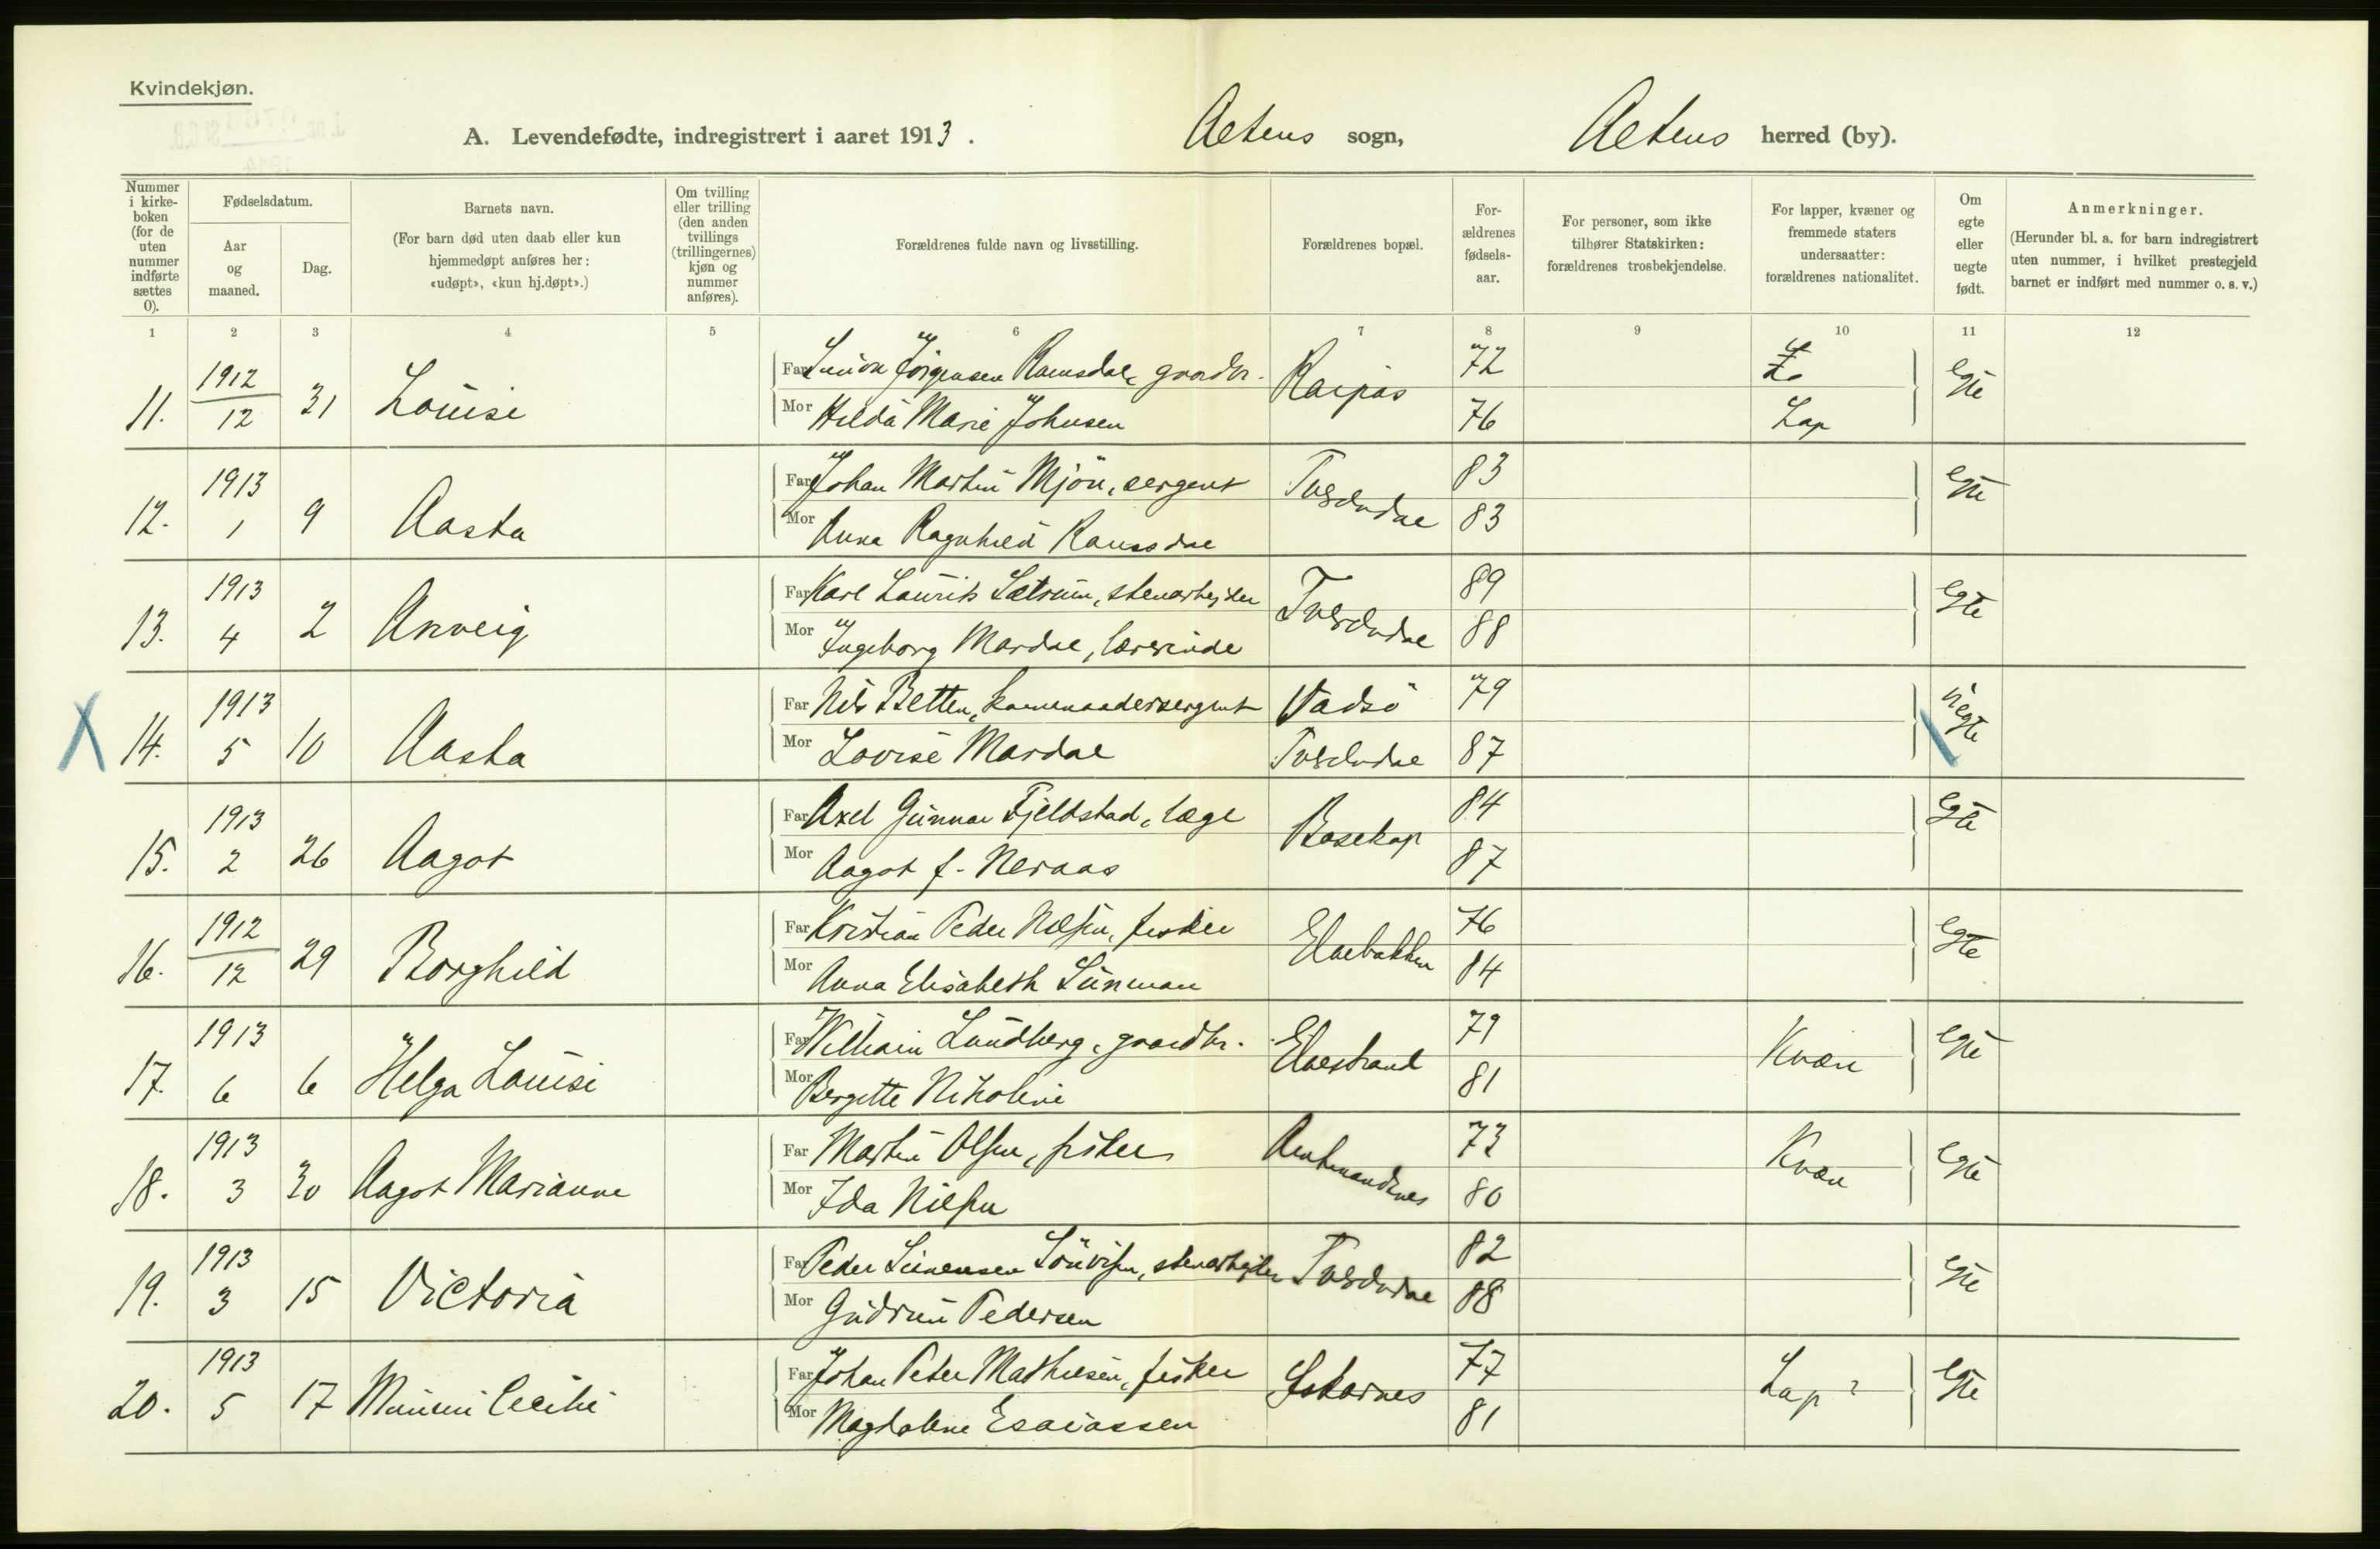 Kvindekjøn.
A. Levendefødte, indregistrert i aaret 1913. Altens sogn, Altens herred (by).
Nummer i kirkeboken (for de uten nummer indførte sættes 0).
Fødselsdatum.
Aar og maaned.
Dag.
Barnets navn.
(For barn død uten daab eller kun hjemmedøpt anføres her: «udøpt», «kun hj.døpt».)
Om tvilling eller trilling (den anden tvillings (trillingernes) kjøn og nummer anføres).
Forældrenes fulde navn og livsstilling.
Forældrenes bopæl.
Forældrenes fødselsaar.
For personer, som ikke tilhører Statskirken: forældrenes trosbekjendelse.
For lapper, kvæner og fremmede staters undersaatter: forældrenes nationalitet.
Om egte eller uegte født.
Anmerkninger.
(Herunder bl. a. for barn indregistrert uten nummer, i hvilket prestegjeld barnet er indført med nummer o. s. v.)
1 2 3 4 5 6 7 8 9 10 11 12
11. 1912 12 31 Louise Far Jörgensen Ramsdal, gaardbr. Raipas 72 egte
Mor Hilda Marie Johnsen 76 Lap
12. 1913 1 9 Aasta Far Johan Martin Mjön, sergent Tverelvdal 83 egte
Mor Anna Ragnhild Ramsdal 83
13. 1913 4 2 Anveig Far Karl Laurits Sætrum, stenarbejder Tverelvdal 89 egte
Mor Ingeborg Mardal, lærerinde 88
X 14. 1913 5 10 Aasta Far Nils Betten, kommandersergent Vadsö 79 uegte
Mor Lovise Mardal Tverelvdal 87
15. 1913 2 26 Aagot Far Axel Gunnar Fjeldstad, læge Bosekop 84 egte
Mor Aagot f. Neraas 87
16. 1912 12 29 Borghild Far Kristian Peder Nilsen, fisker Elvebakken 76 egte
Mor Anna Elisabeth Sunman 84
17. 1913 6 6 Helga Louise Far William Lundberg, gaardbr. Elvestrand 79 Kvæn egte
Mor Bergitte Nikoline 81
18. 1913 3 30 Aagot Marianne Far Martin Olsen, fisker Amtmandsnes 73 Kvæn egte
Mor Ida Nilsen 80
19. 1913 3 15 Victoria Far Peder Simensen stenarbejder Tverelvdal 82 egte
Mor Gudrun Pedersen 88
20. 1913 5 17 Mimmi Cecilie Far Johan Peter Mathiesen, fisker Iskarnes 77 Lap ? egte
Mor Magdalene Esaiassen 81